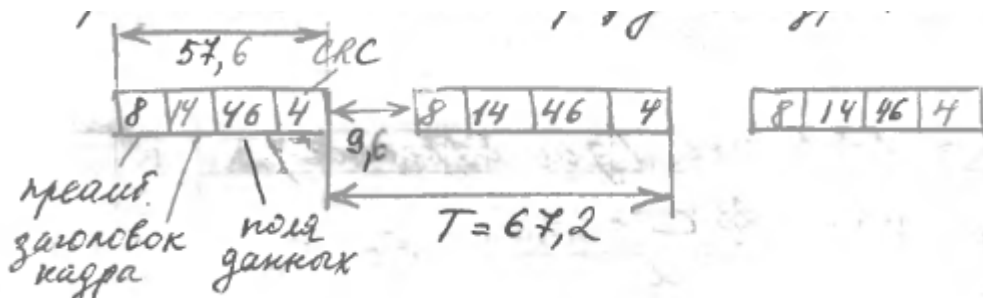 57,6
CRC
8 14 46 4
8 14 46 4
8 14 46 4
9,6
T = 67,2
преамб.
заголовок
кадра
поля
данных